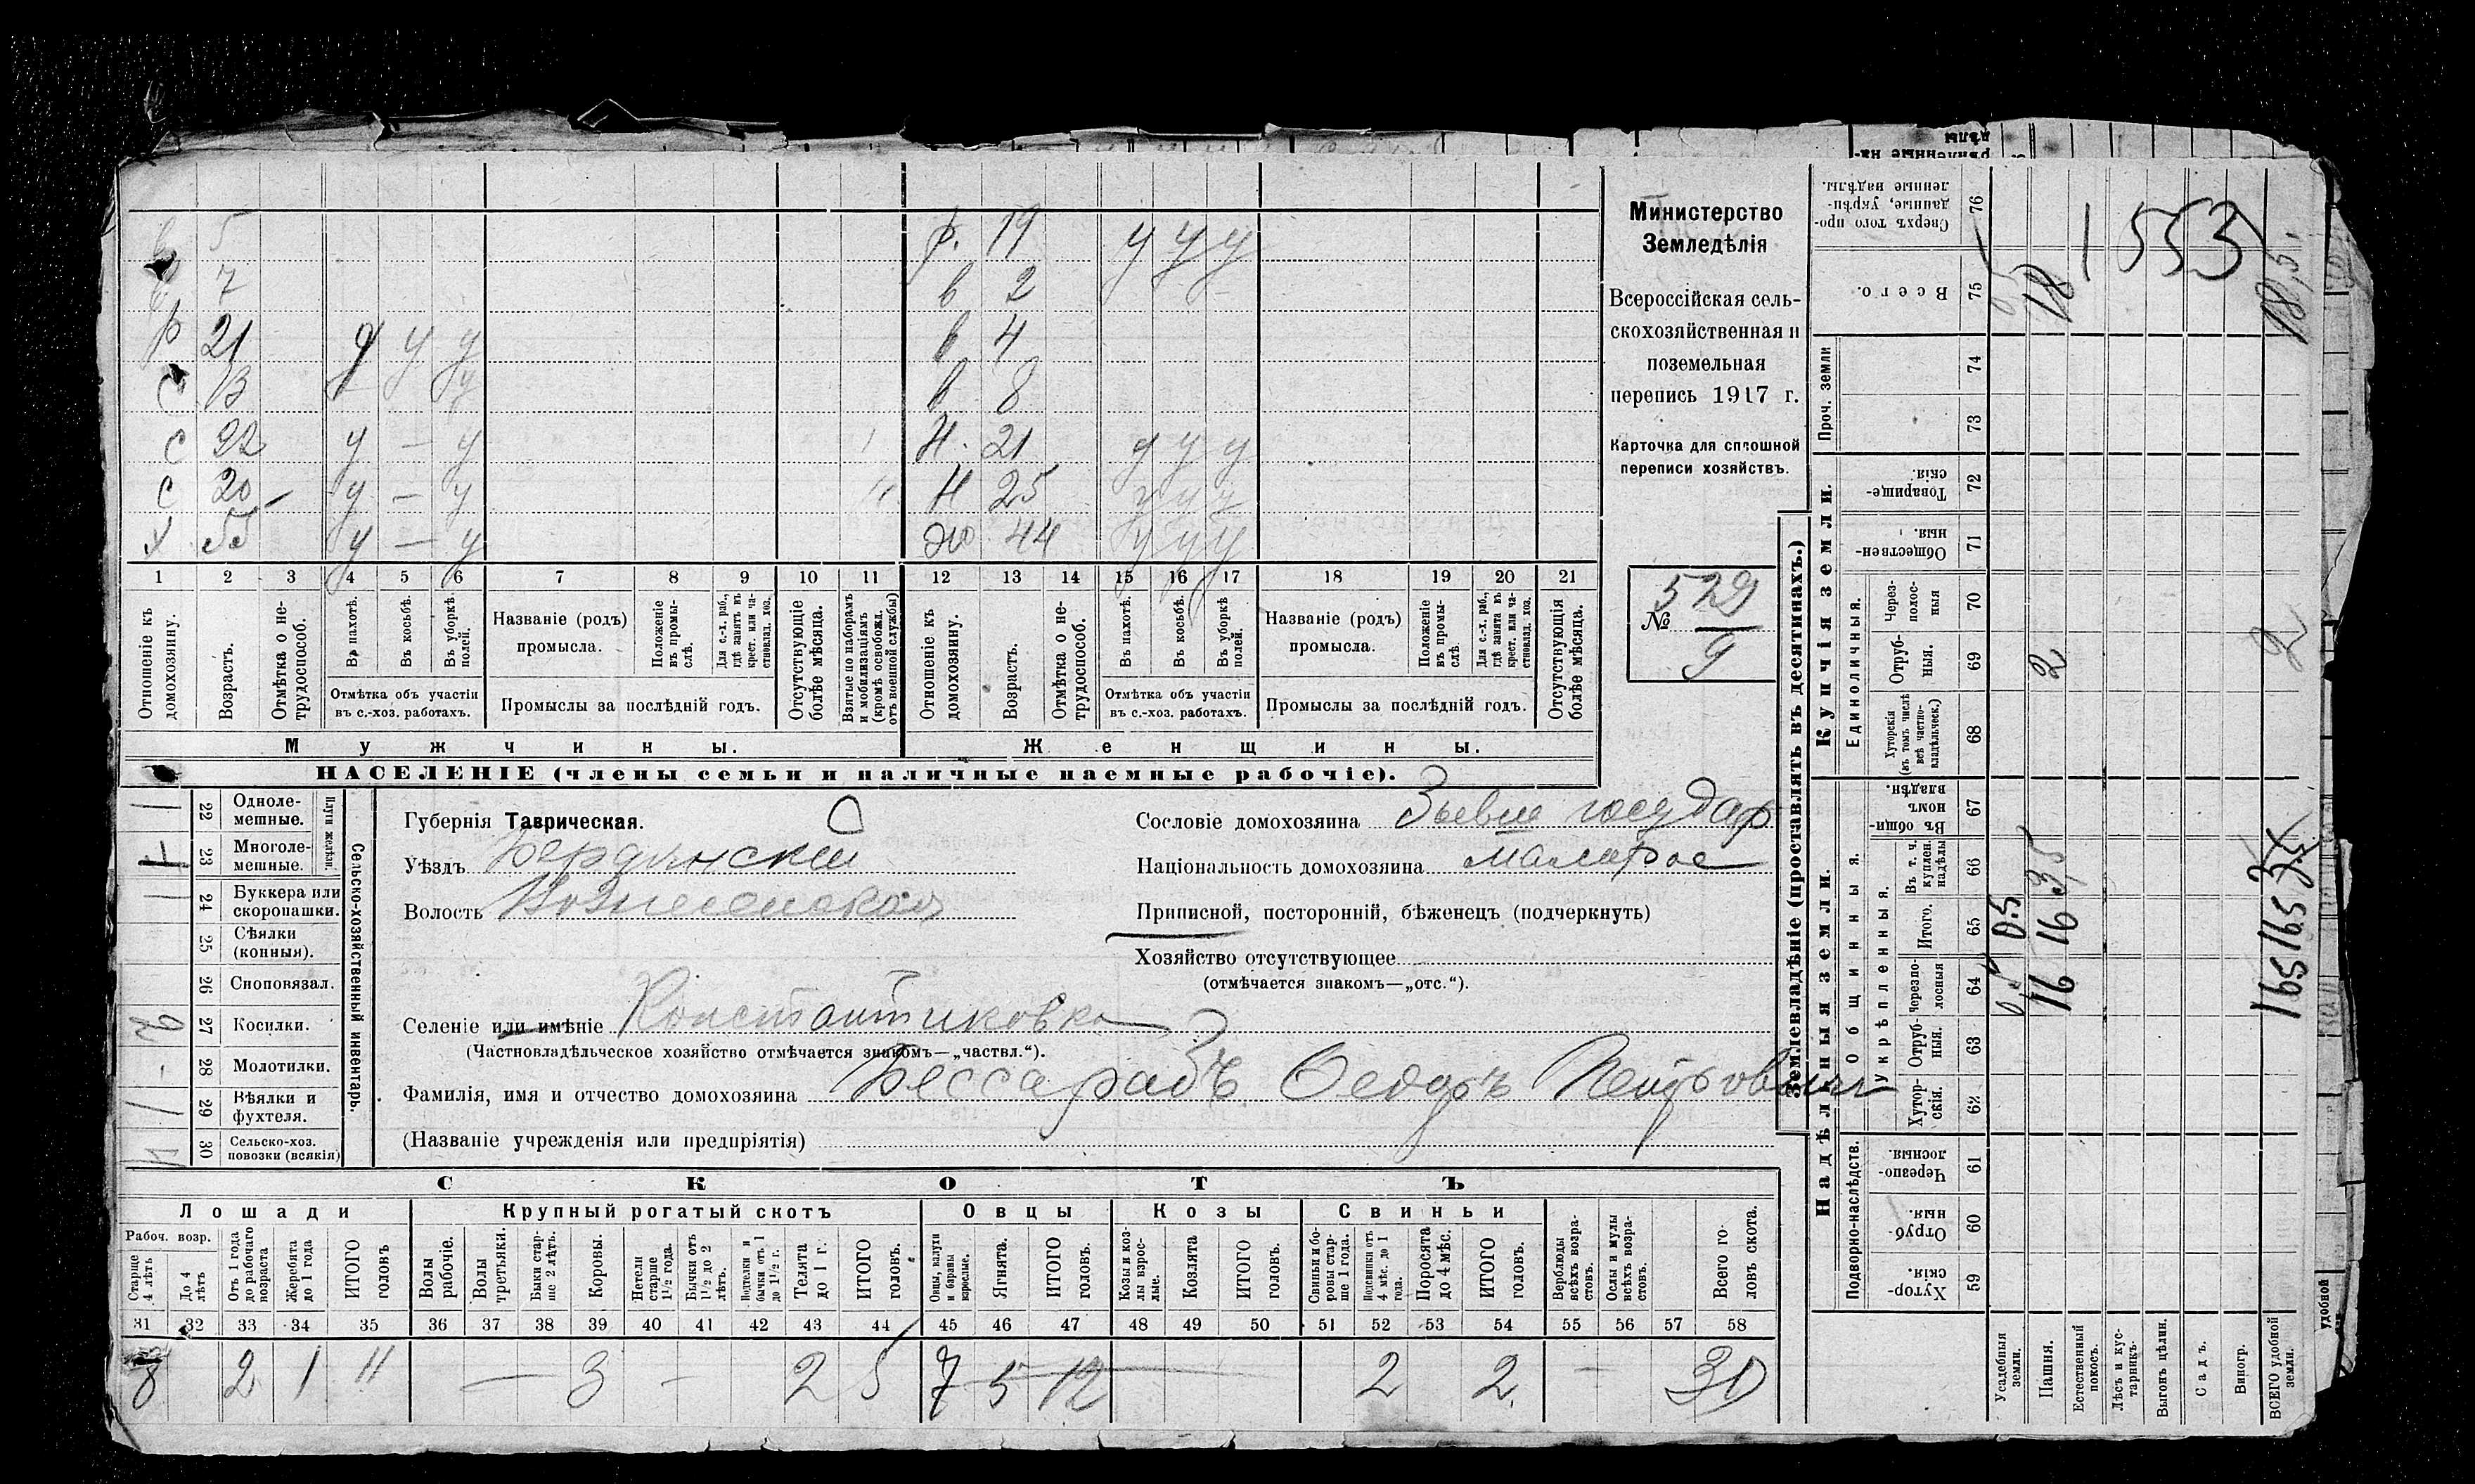 в 5 ф. 19 у у у
7 в 2
р 21 у у у в 4
с 13 у в 8
с 22 у — у н. 21 у у у
с 20 — у — у н 25 у у у
х 55 у — у ж 44 у у у
1 2 3 4 5 6 7 8 9 10 11 12 13 14 15 16 17 18 19 20 21
Отношеніе къ домохозяину.
Возрастъ.
Отмѣтка о не-трудоспособ.
Въ пахотѣ.
Въ косьбѣ.
Въ уборкѣ полей.
Отмѣтка объ участіи
въ с.-хоз. работахъ.
Названіе (родъ)
промысла.
Положеніе въ промы-слѣ.
Для с.-х. раб., гдѣ занятъ въ крест. или ча-стновлад. хоз.
Промыслы за послѣдній годъ.
Отсутствующіе болѣе мѣсяца.
Взятые по наборамъ и мобилизаціямъ (кромѣ освобожд. отъ военной службы)
Отношеніе къ домохозяину.
Возрастъ.
Отмѣтка о не-трудоспособ.
Въ пахотѣ.
Въ косьбѣ.
Въ уборкѣ полей.
Отмѣтка объ участіи
въ с.-хоз. работахъ.
Названіе (родъ)
промысла.
Положеніе въ промы-слѣ.
Для с.-х. раб., гдѣ занята въ крест. или ча-стновлад. хоз.
Промыслы за послѣдній годъ.
Отсутствующія болѣе мѣсяца.
Мужчины. Женщины.
НАСЕЛЕНІЕ (члены семьи и наличные наемные рабочіе).
Министерство
Земледѣлія
Всероссійская сель-
скохозяйственная и
поземельная
перепись 1917 г.
Карточка для сплошной
переписи хозяйствъ.
№ 529
9
Сельско-хозяйственный инвентарь.
Плуги желѣзн.
1 22 Одноле-мешные.
1 23 Многоле-мешные.
1 24 Буккера или скоропашки.
25 Сѣялки (конныя).
26 Сноповязал.
2 27 Косилки.
- 28 Молотилки.
1 29 Вѣялки и фухтеля.
30 Сельско-хоз. повозки (всякія)
Губернія Таврическая.
Уѣздъ Бердянскій
Волость Вознесенская
Сословіе домохозяина Бывш государ
Національность домохозяина малорос
Приписной, посторонній, бѣженецъ (подчеркнуть)
Хозяйство отсутствующее
(отмѣчается знакомъ—„отс.“).
Селеніе или имѣніе Константиновка
(Частновладѣльческое хозяйство отмѣчается знакомъ—„частвл.“).
Фамилія, имя и отчество домохозяина Бессарабъ Ѳедоръ Петрович
(Названіе учрежденія или предпріятія)
СКОТЪ
Лошади Крупный рогатый скотъ Овцы Козы Свиньи
Рабоч. возр.
Старше 4 лѣтъ
До 4 лѣтъ
Отъ 1 года до рабочаго возраста
Жеребята до 1 года
ИТОГО головъ
Волы рабочіе.
Волы третьяки.
Быки стар-ше 2 лѣтъ.
Коровы.
Нетели старше 1½ года.
Бычки отъ 1½ до 2 лѣтъ.
Подтелки и бычки отъ 1 до 1½ г.
Телята до 1 г.
ИТОГО головъ.
Овцы, валухи и бараны взрослые.
Ягнята.
ИТОГО головъ.
Козы и коз-лы взрос-лые.
Козлята
ИТОГО головъ.
Свиньи и бо-ровы стар-ше 1 года.
Подсвинки отъ 4 мѣс. до 1 года.
Поросята до 4 мѣс.
ИТОГО головъ.
Верблюды всѣхъ возра-стовъ.
Ослы и мулы всѣхъ возра-стовъ.
Всего го-ловъ скота.
31 32 33 34 35 36 37 38 39 40 41 42 43 44 45 46 47 48 49 50 51 52 53 54 55 56 57 58
8 2 1 11 — 3 — 2 5 7 5 12 2 2 — 30
Землевладѣніе (проставлять въ десятинахъ.)
Надѣльныя земли. Купчія земли.
Подворно-наслѣдств.
Общинныя.
Укрѣпленныя.
Единоличныя.
Проч. земли
Хутор-скія. 59
Отруб-ныя. 60
Черезпо-лосныя. 61
Хутор-скія. 62
Отруб-ныя. 63
Черезпо-лосныя 64
Итого. 65
Въ т. ч. куплен. надѣлы 66
Въ общи-номъ владѣн. 67
Хуторскія (въ томъ числѣ всѣ частно-владѣльческ.) 68
Отруб-ныя. 69
Через-полос-ныя 70
Обществен-ныя. 71
Товарище-скія. 72
73
74
Всего. 75
Сверхъ того про-данные, укрѣп-ленные надѣлы. 76
Усадебныя земли. 0.5 0.5
Пашня. 16 16 3,5 2 18
Естественный покосъ.
Лѣсъ и кус-тарникъ.
Выгонъ цѣлин.
Садъ.
Виногр.
ВСЕГО удобной земли. 16.5 16.5 3.5 2 18,5
1553
удобной